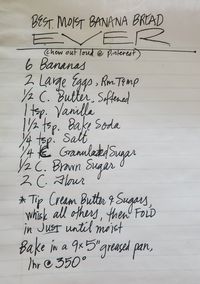 BEST MOIST BANANA BREAD
EVER
(chow out loud @ Pinterest)
6 Bananas
2 Large Eggs, Rm. Temp
1/2 C. Butter, Softened
1 tsp. Vanilla
1 1/2 tsp. Bake Soda
1/4 tsp. Salt
1/4 C Granulated Sugar
1/2 C. Brown Sugar
2 C. Flour
* Tip Cream Butter & Sugars,
whisk all others, then FOLD
in JUST until moist
Bake in a 9x5" greased pan,
1hr @ 350°